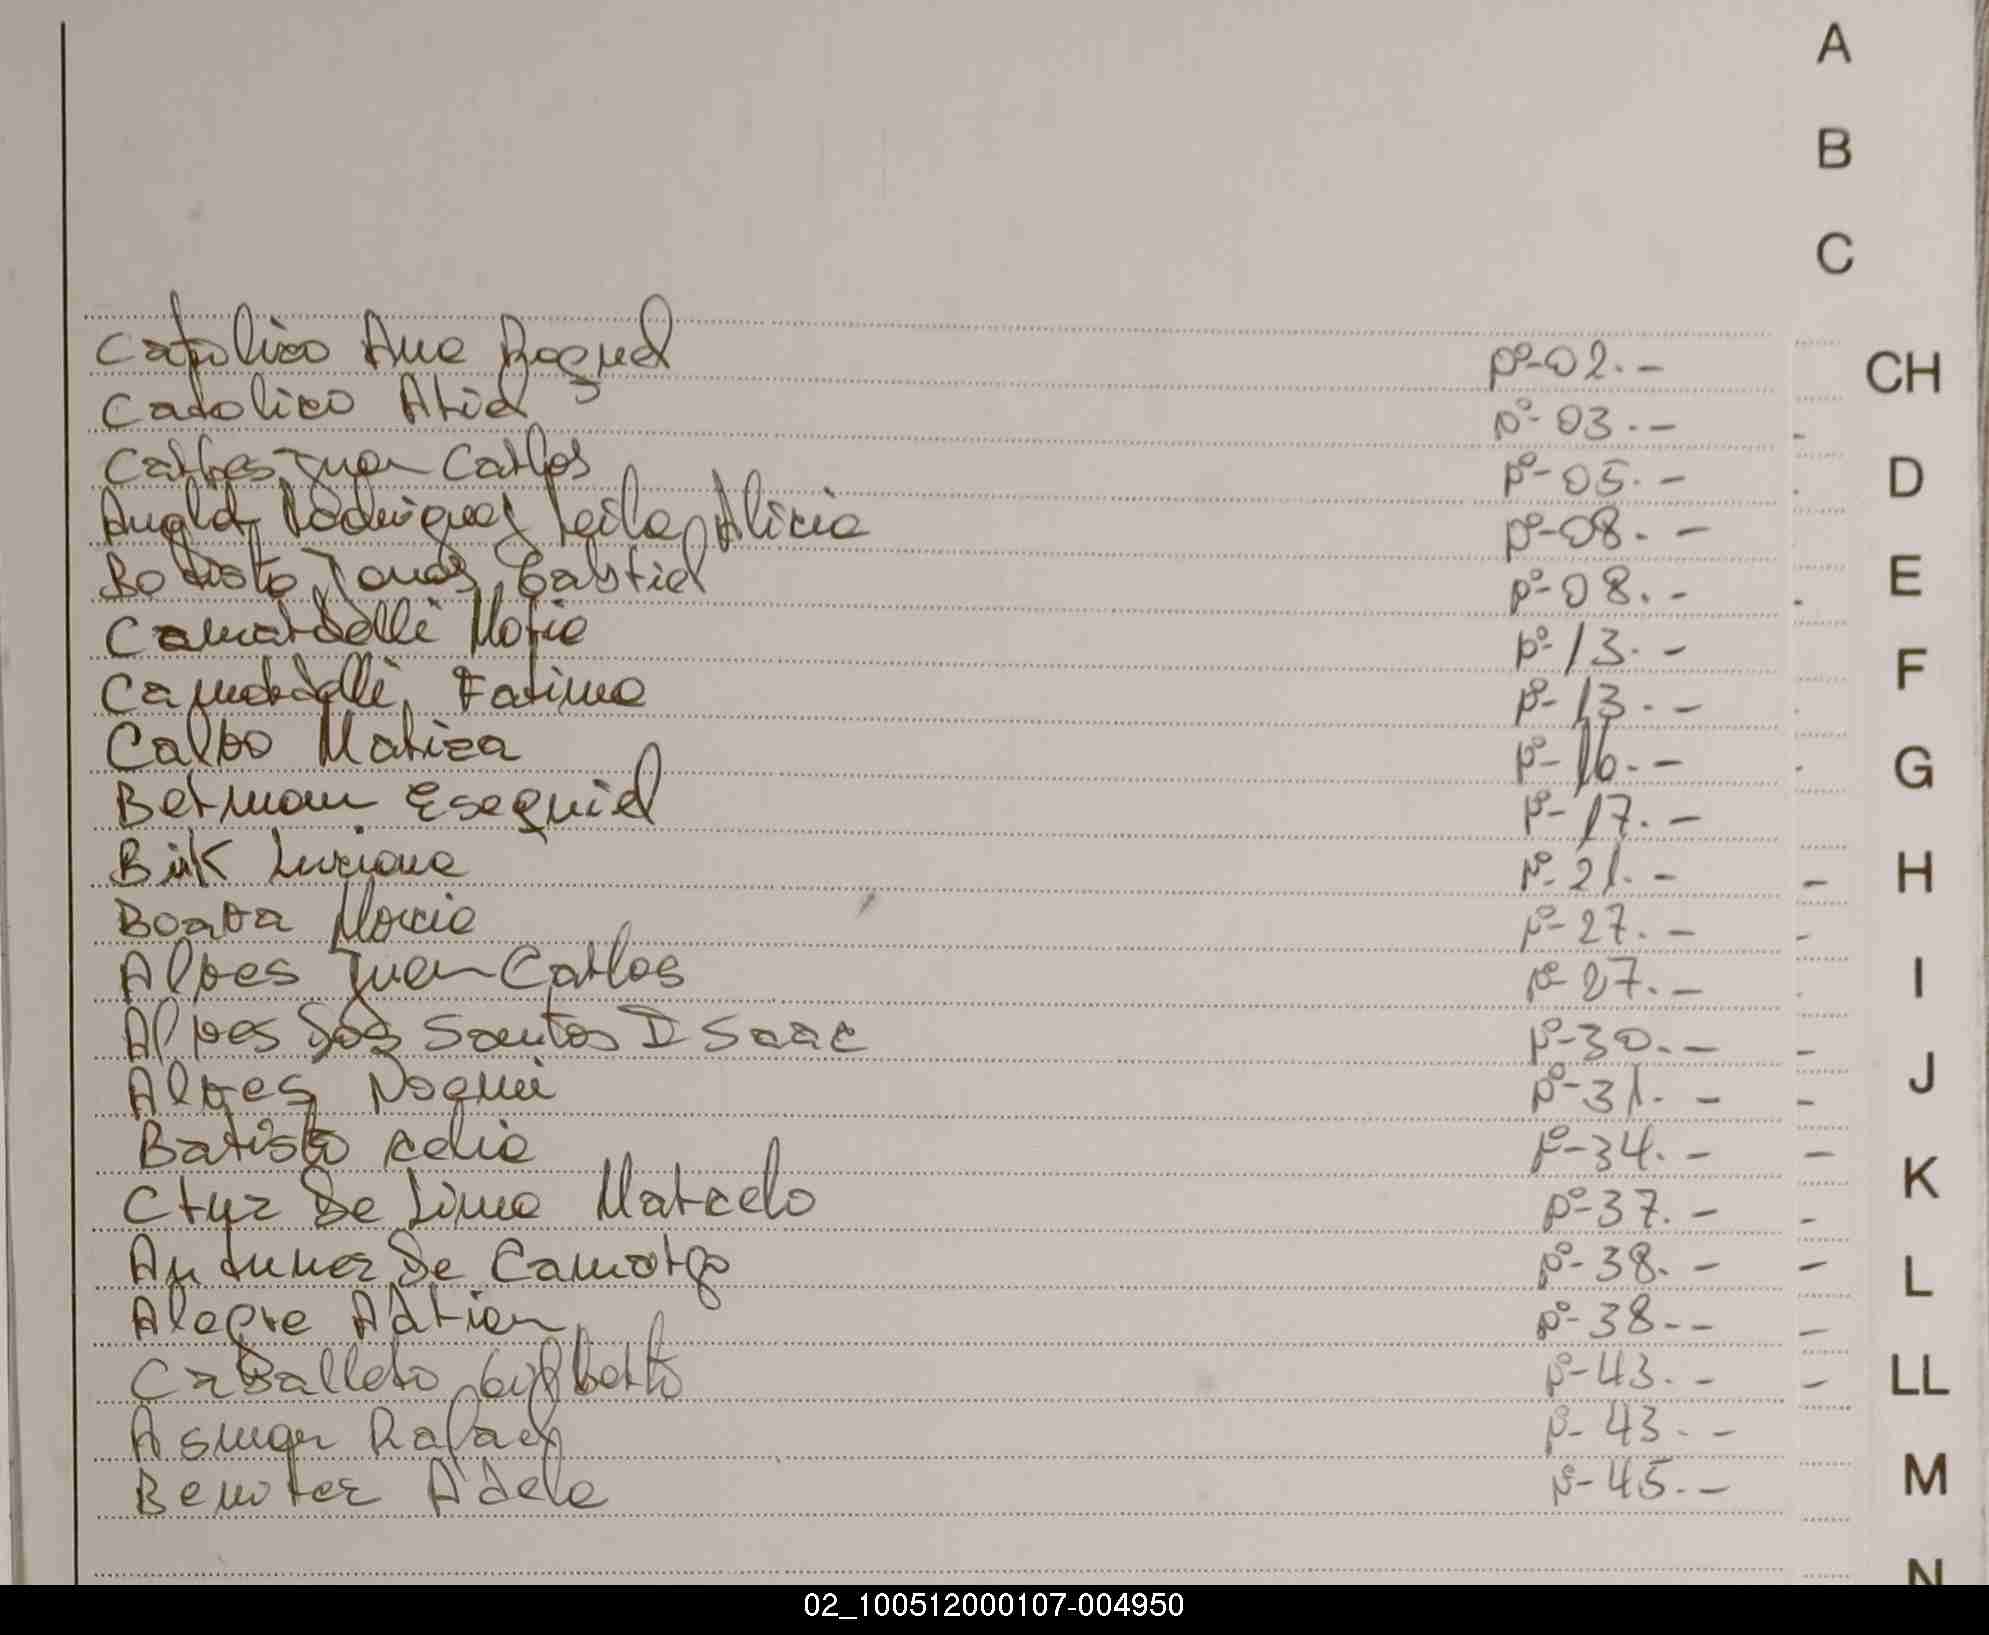 A
B
C
Catolico Ana Raquel pº-02.-
Catolico Ariel pº-03.-
Carlos Juan Carlos pº-05.-
Rodriguez Leila Alicia pº-08.-
Batista Jonas Gabriel pº-08.-
Camardelli Maria pº-13.-
Camardelli Fatima pº-13.-
Calvo Mariza pº-16.-
Berman Esequiel pº-17.-
Luciana pº-21.-
Maria pº-27.-
Alves Juan Carlos pº-27.-
Alves Dos Santos Isaac pº-30.-
Alves Noemi pº-31.-
Batista Celia pº-34.-
Cruz De Lima Marcelo pº-37.-
Antunez De Camargo pº-38.-
Alegre Adrian pº-38.-
Caballero Gilberto pº-43.-
Rafael pº-43.-
Benitez Adela pº-45.-
CH
D
E
F
G
H
I
J
K
L
LL
M
N
02_100512000107-004950